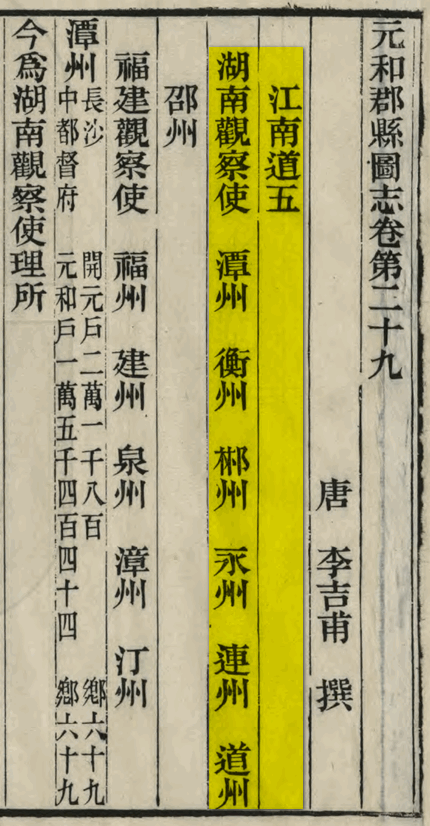 元和郡縣圖志卷第二十九
唐 李吉甫 撰
江南道五
湖南觀察使 潭州 衡州 郴州 永州 連州 道州
邵州
福建觀察使 福州 建州 泉州 漳州 汀州
潭州 長沙 開元戶二萬一千八百 鄉六十九
中都督府 元和戶一萬五千四百四十四 鄉六十九
今爲湖南觀察使理所